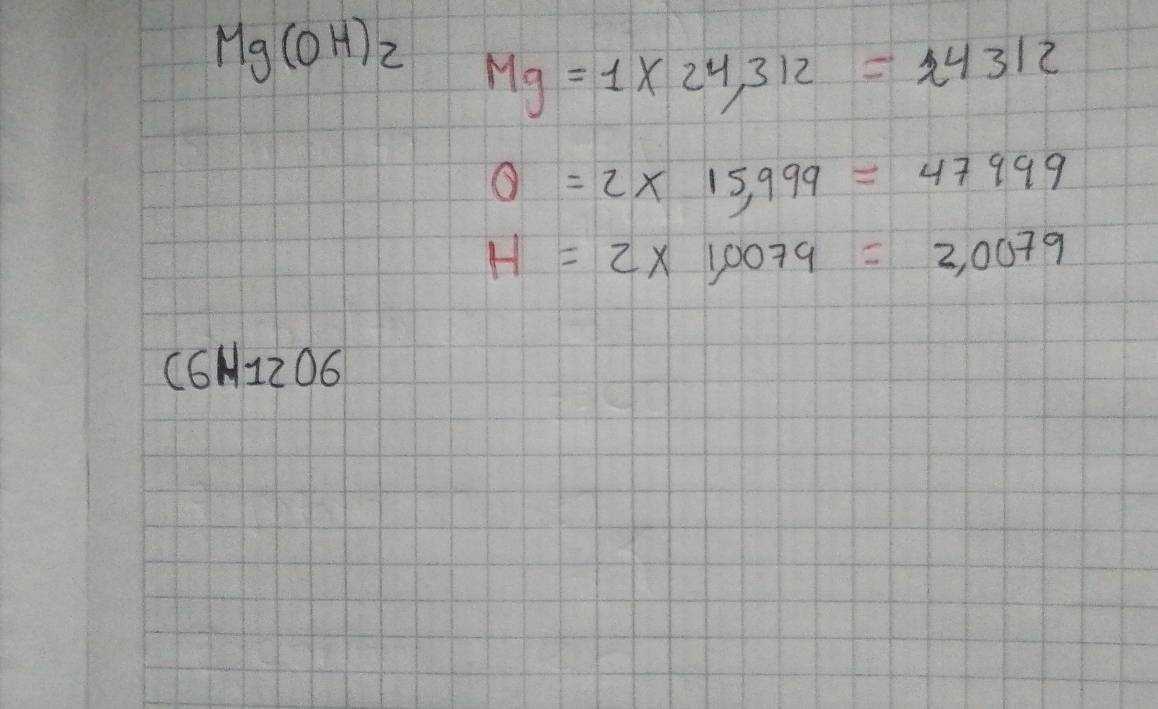 Mg(OH)2
Mg = 1 X 24,312 = 24312
O = 2 X 15,999 = 47999
H = 2 X 1,0079 = 2,0079
C6H12O6